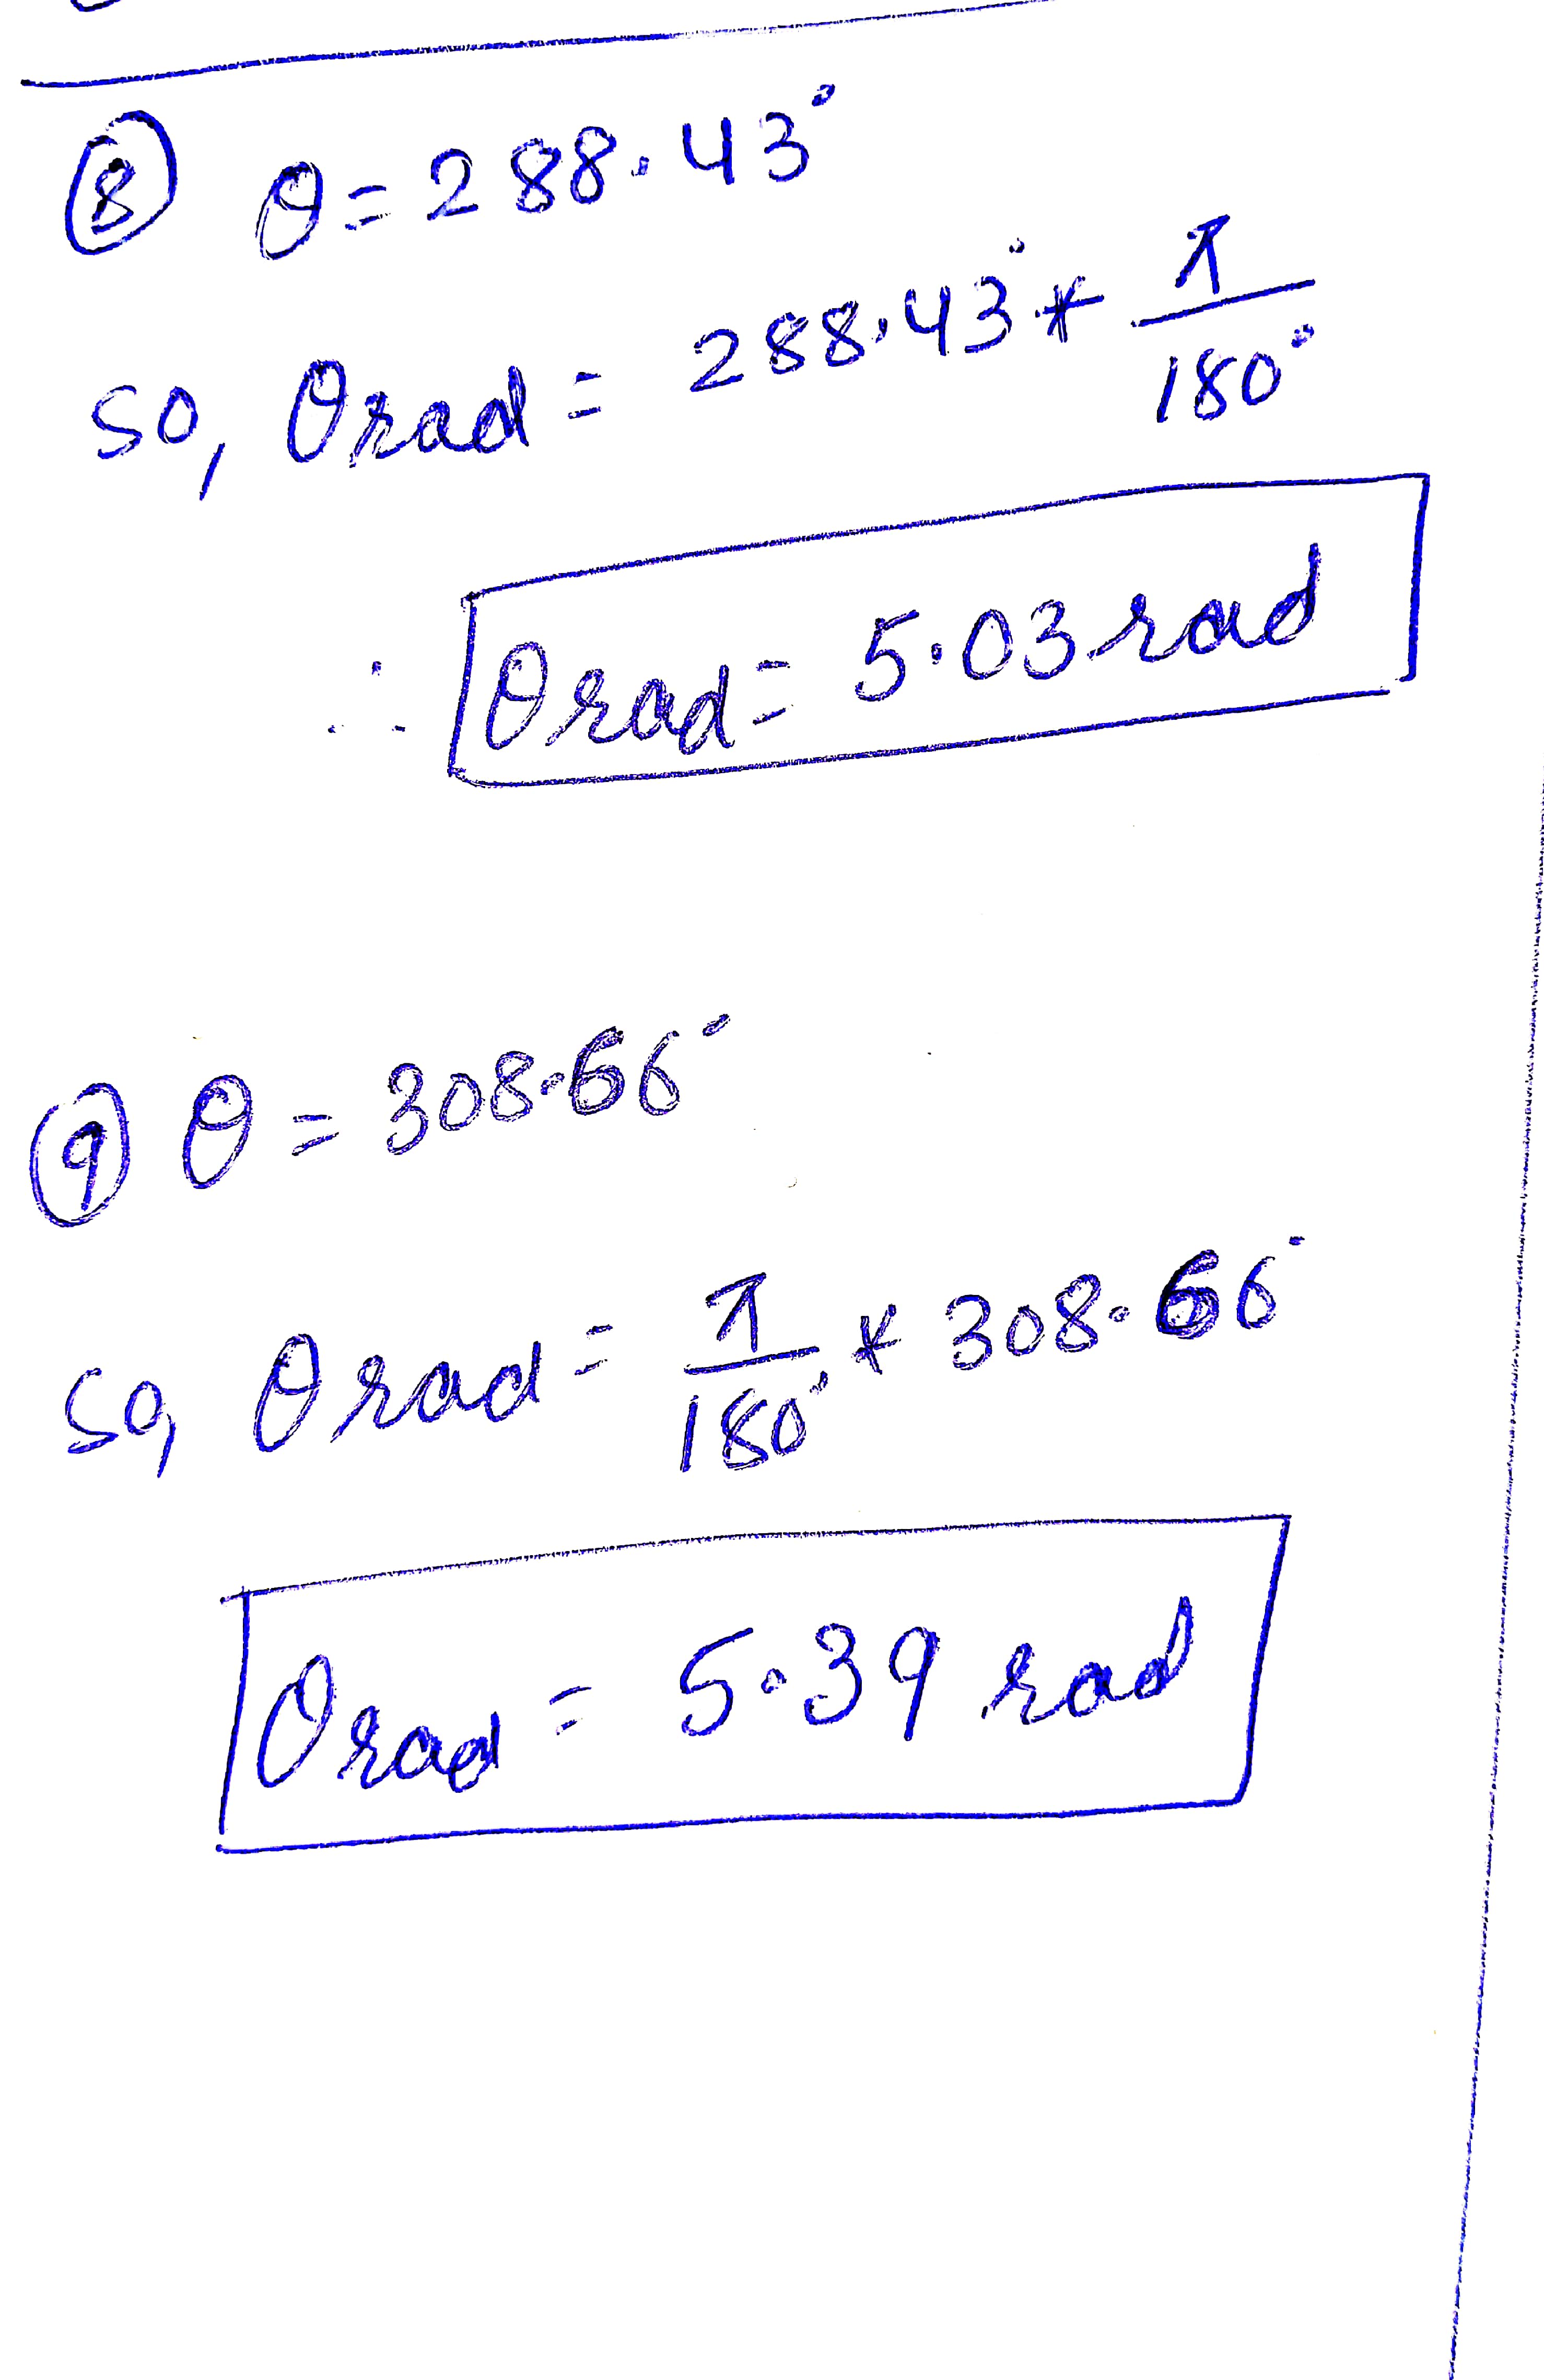 ⑧ θ = 288.43°
so, θrad = 288.43° * π/180°
∴ θrad = 5.03 rad
⑨ θ = 308.66°
so, θrad = π/180° * 308.66°
θrad = 5.39 rad